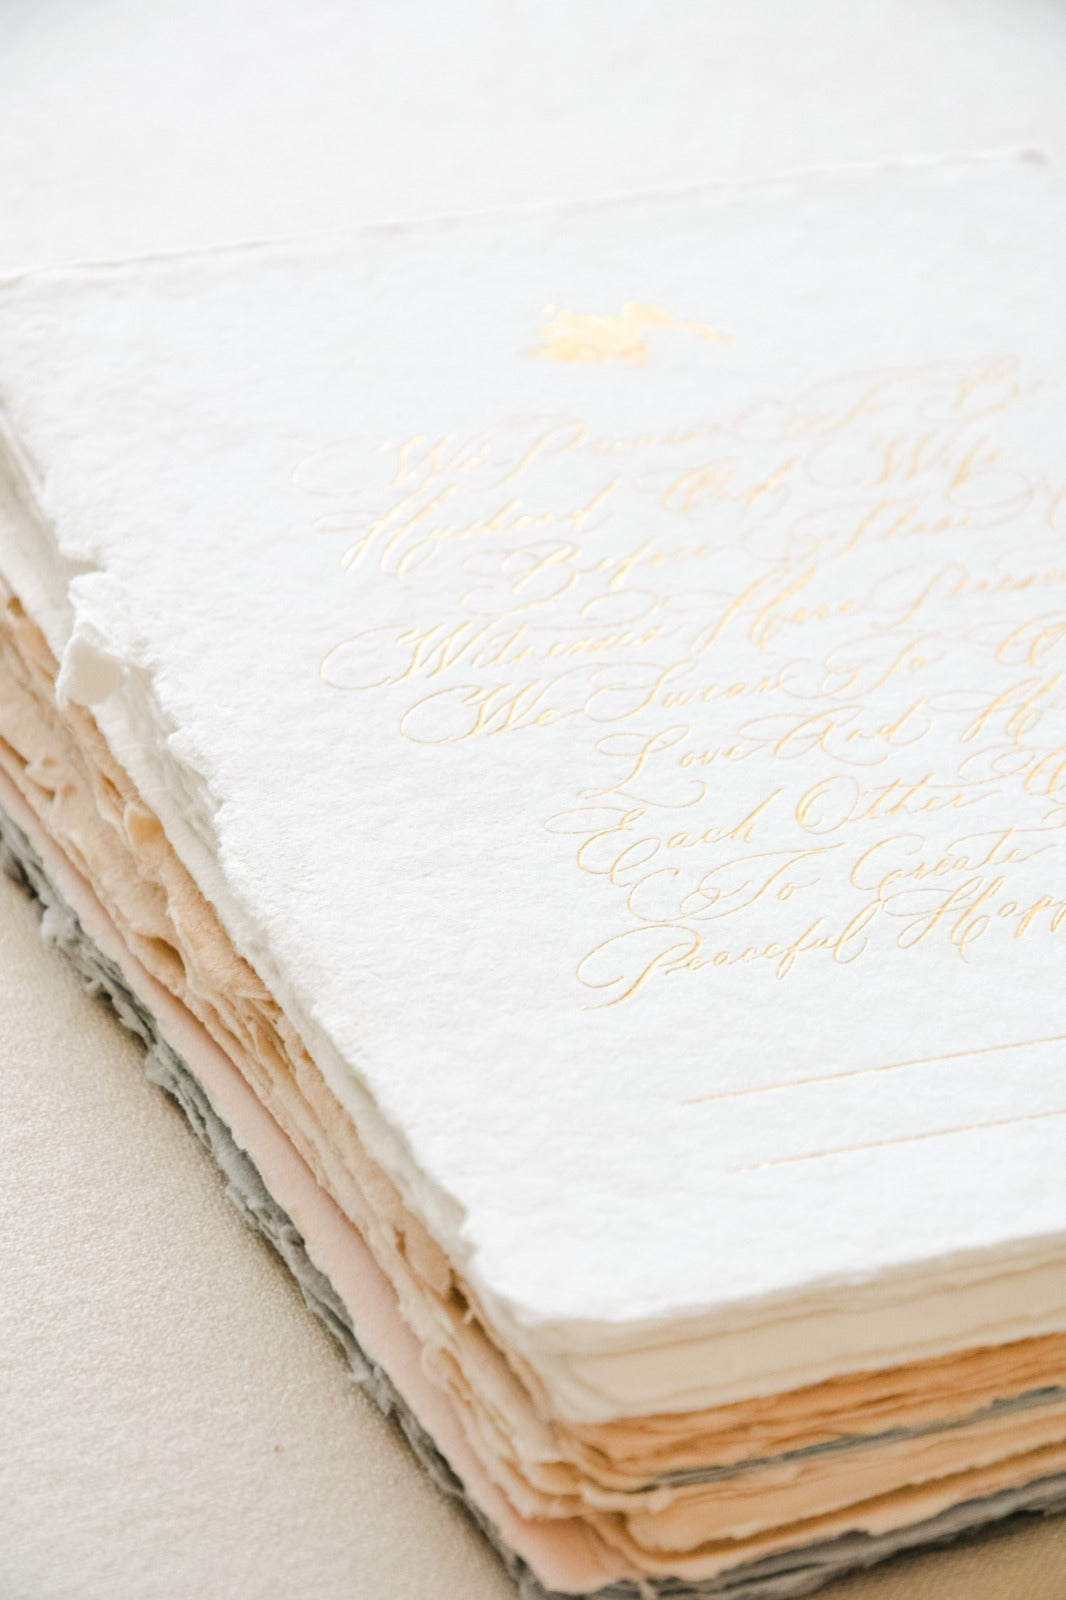 We Promise To Be
Husband And Wife
Before These
Witnesses Here Presen
We Swear To
Love And H
Each Other
To Create
Peaceful Happ